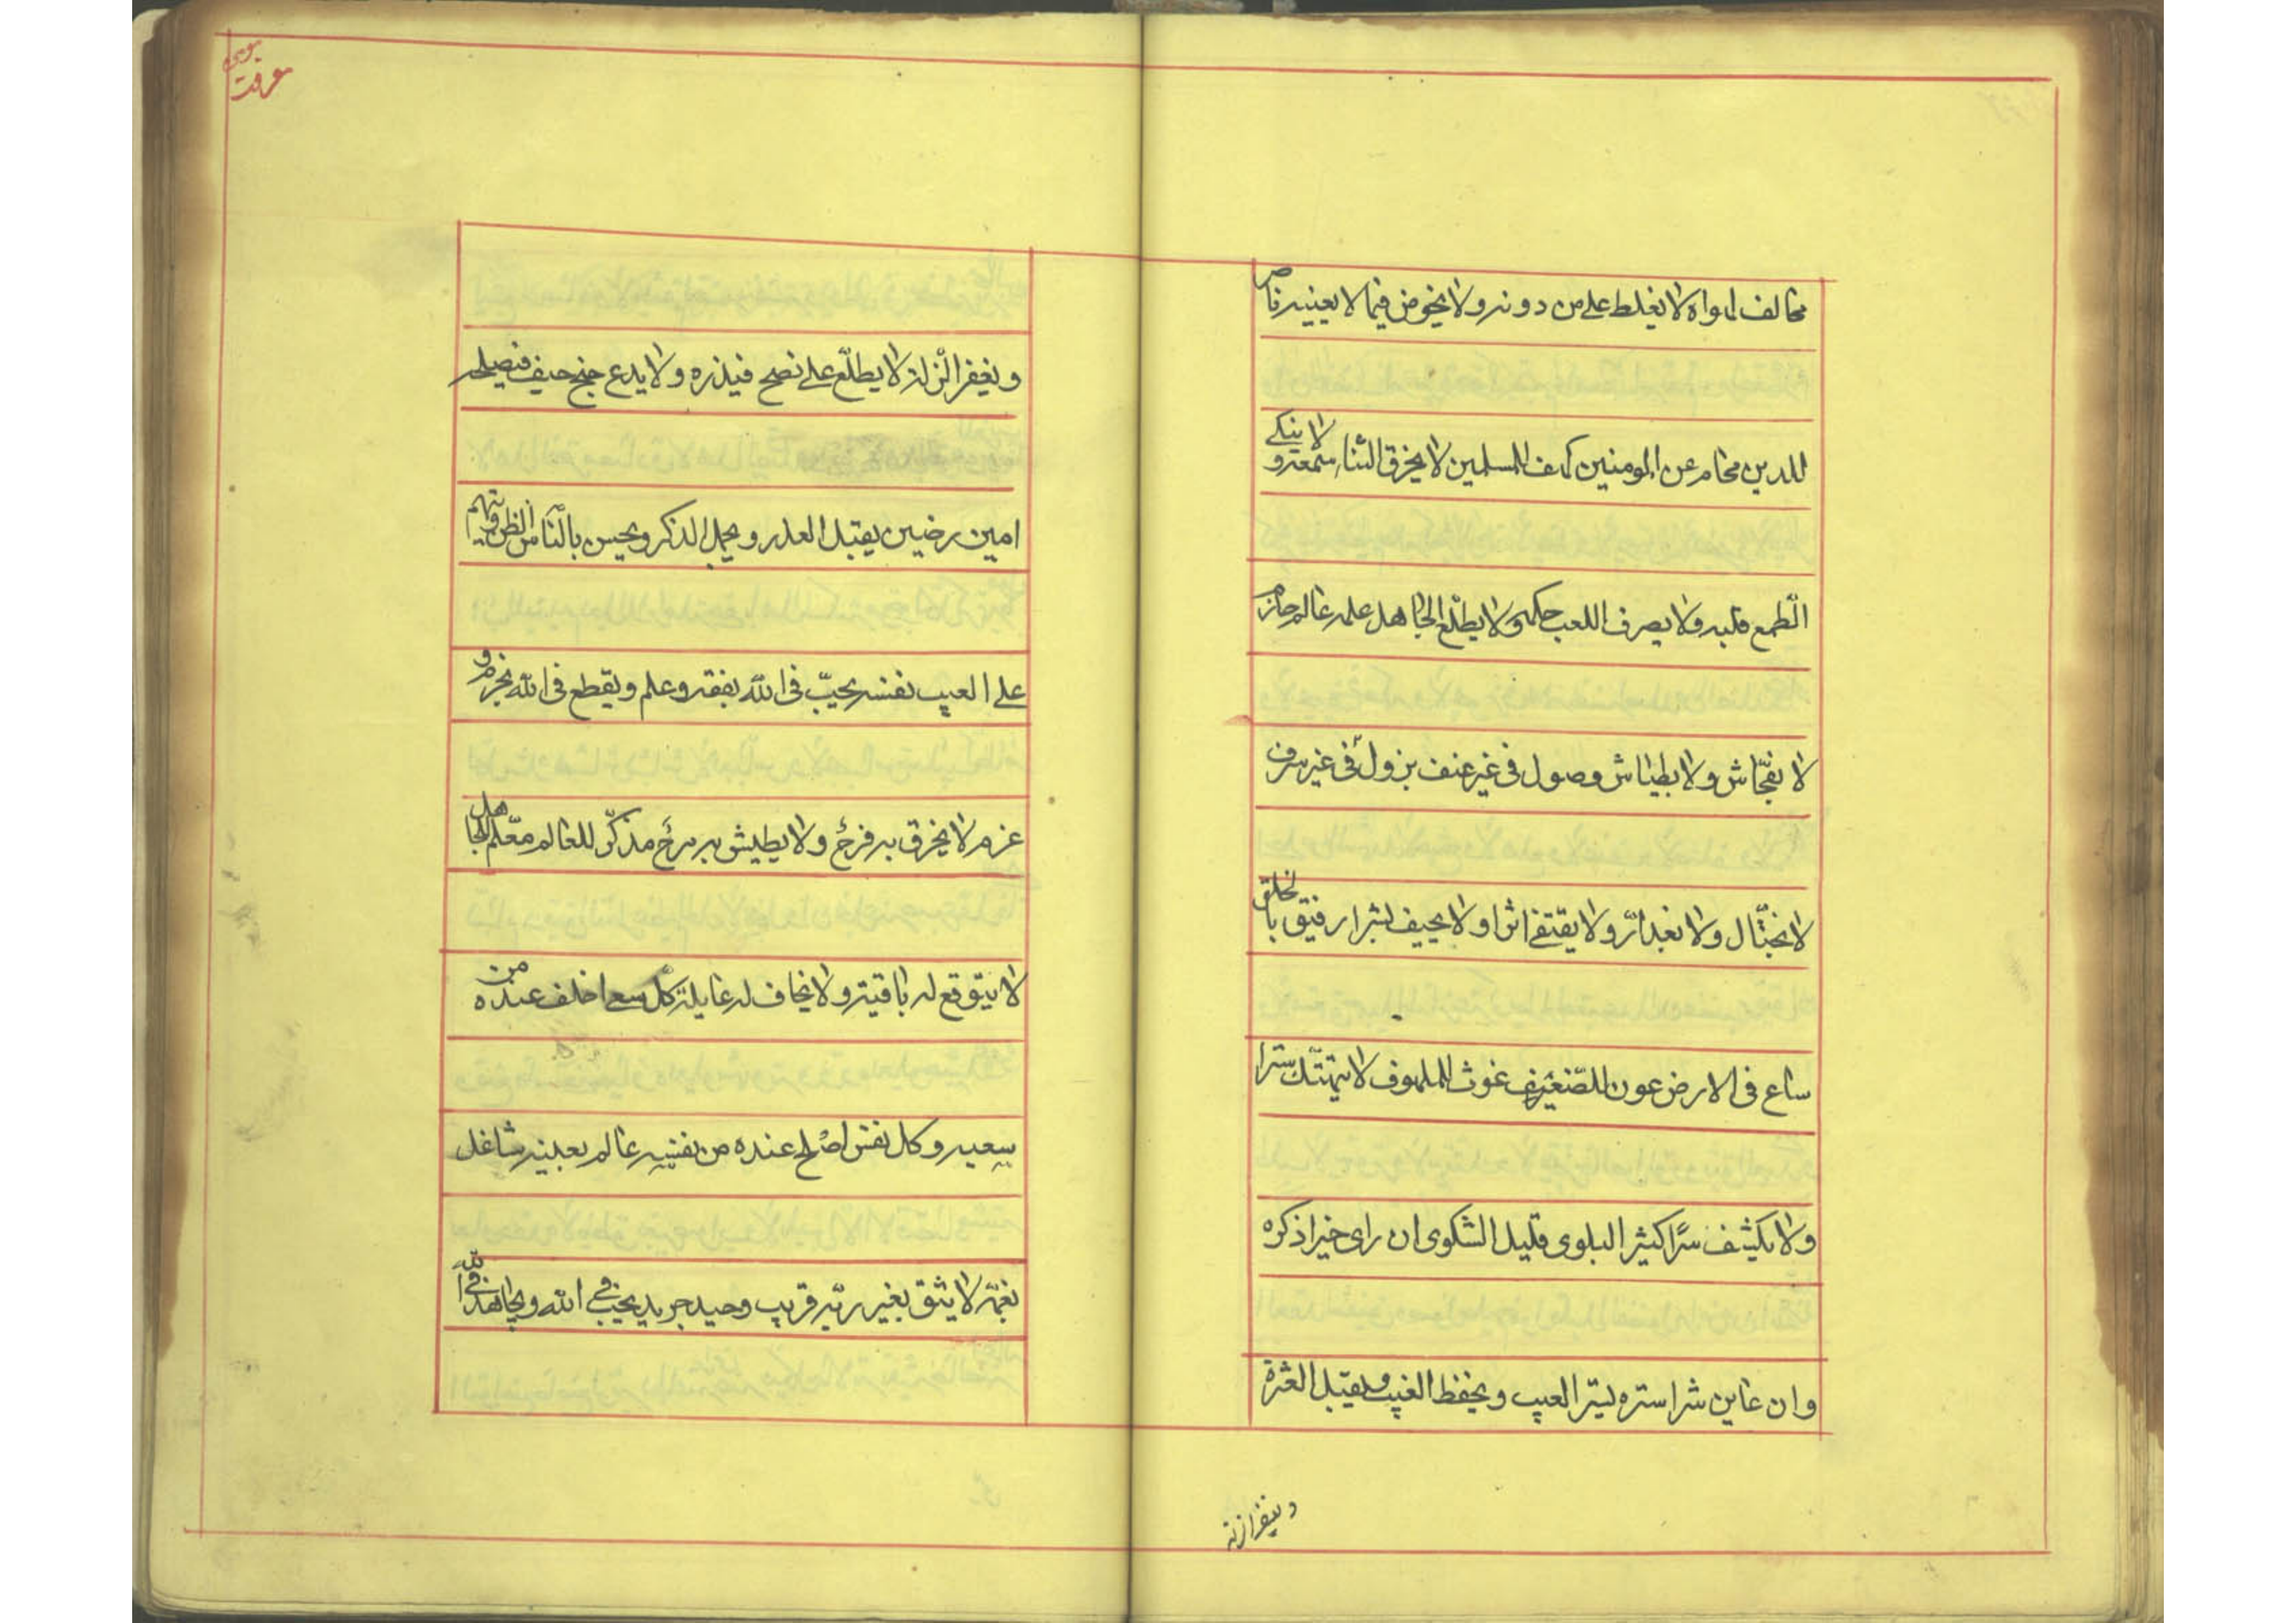 مخالف لهواه لا يغلظ على من دونه ولا يخوض فيما لا يعنيه ناصر
للدين محام عن المومنين كهف للمسلمين لا يخرق الثناء سمعه ولا ينكى
الطّمع قلبه ولا يصرف اللعب حكمه ولا يطلّع الجاهل علمه عالم حازم
لا بفحّاش ولا بطياش وصول فى غير عنف بزول فى غير سرف
لا بختّال ولا بغدّار ولا يقتفى اثرا ولا يحيف بشرا رفيق بالخلق
ساع فى الارض عون للضّعيف غوث للملهوف لا يهتك سترا
ولا يكشف سرّا كثير البلوى قليل الشكوى ان راى خيرا ذكره
وان عاين شرا ستره يستر العيب ويحفظ الغيب ويقبل العثرة
ويغفر الزلة
ويغفر الزّلة لا يطلّع على نصح فيذره ولا يدع جنح حيف فيصلحه
امين رضين يقبل العذر ويجمل الذكر ويحسن بالنّاس الظن ويتهم
على العيب نفسه يحبّ فى الله بفقه وعلم ويقطع فى الله بحزم و
عزم لا يخرق به فرح ولا يطيش به مرح مذكّر للعالم معلّم للجاهل
لا يتوقع له باقية ولا يخاف له غايلة كلّ سعى اخلف عنده من
سعيه وكل نفس اصلح عنده من نفسه عالم بعيبه شاغل
بغمّه لا يثق بغير ربّه قريب وحيد جريد يحب فى الله ويجاهد فى الله